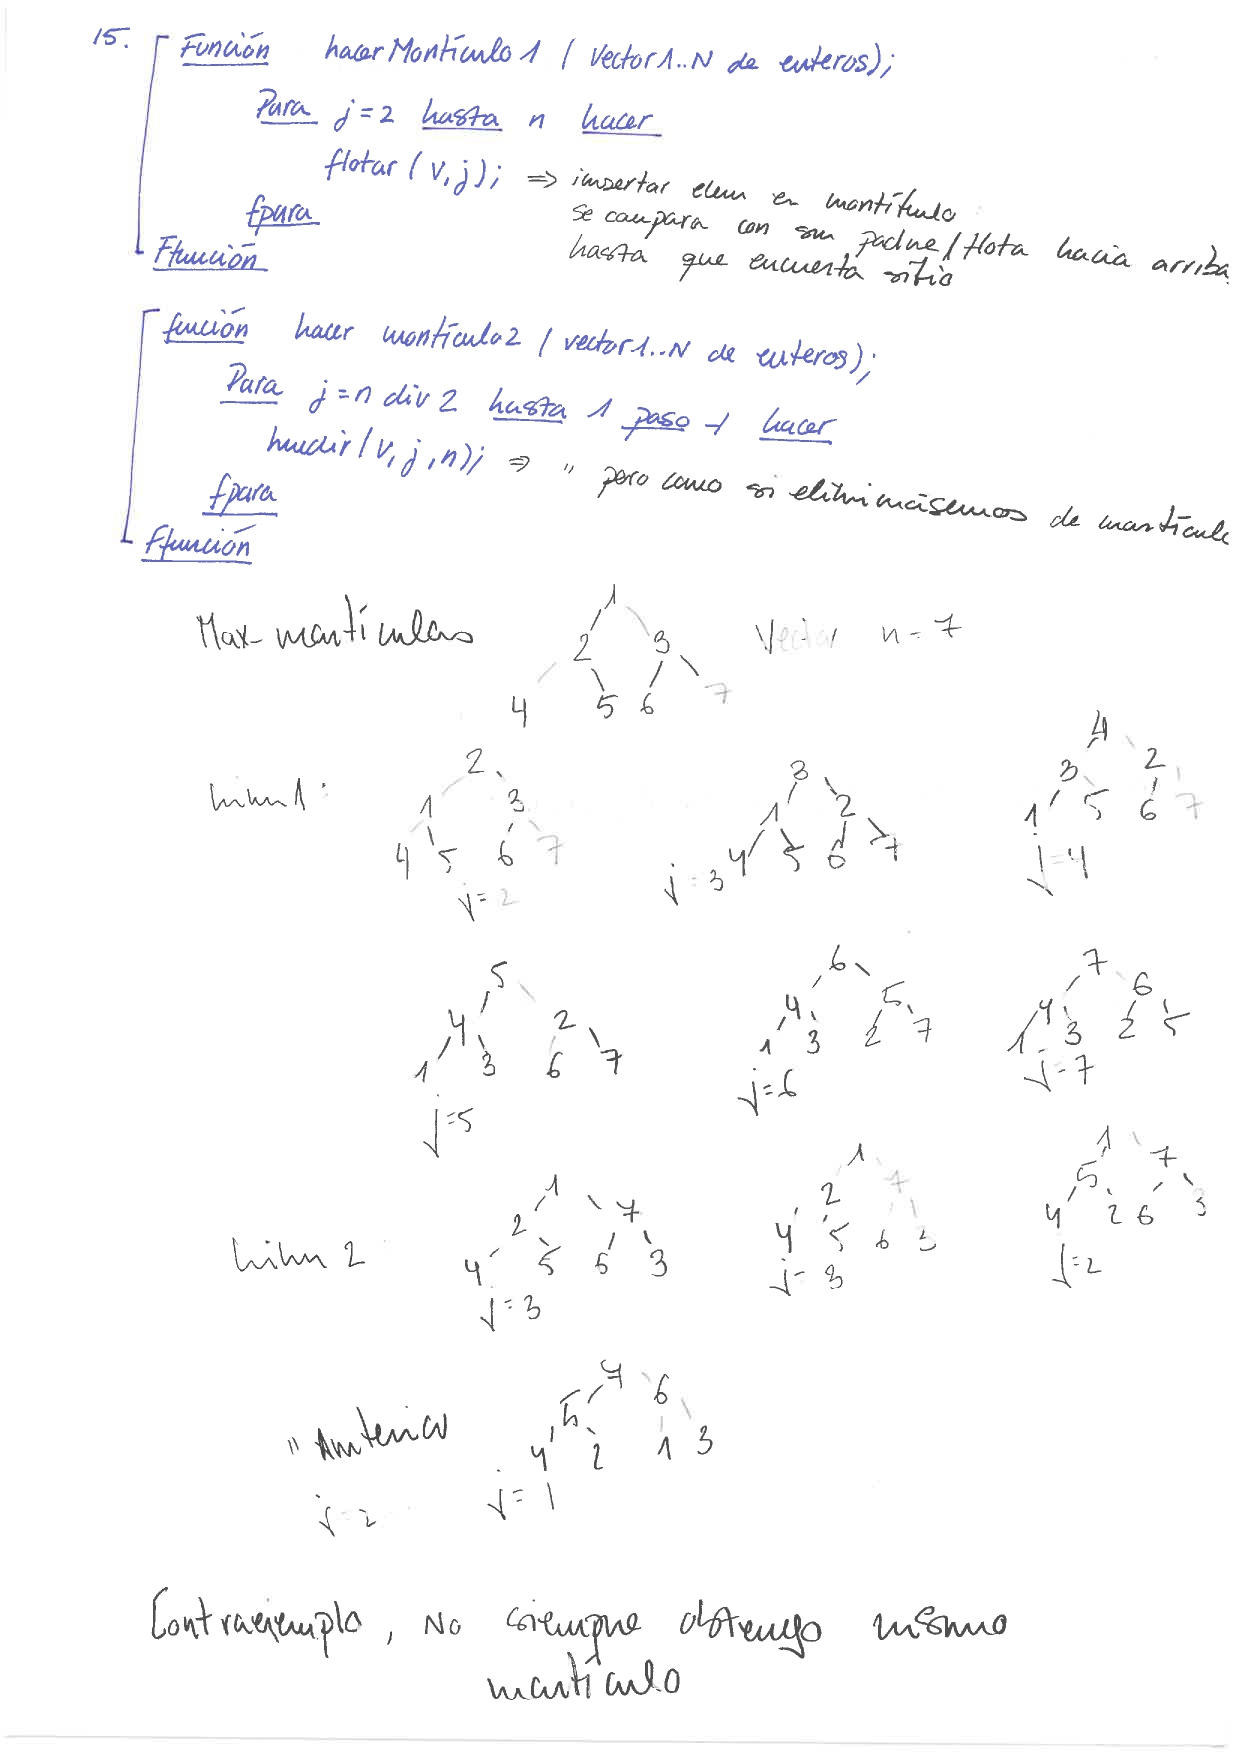 15. Función hacerMontículo1 (Vector1..N de enteros);
Para j=2 hasta n hacer
flotar (v,j); ⇒ insertar elem en montítulo
se compara con su padre/flota hacia arriba
hasta que encuentra sitio
fpara
Ffunción
función hacer montículo2 (vector1..N de enteros);
Para j=n div 2 hasta 1 paso -1 hacer
hundir(v,j,n); ⇒ " pero como si eliminásemos de montícul
fpara
Ffunción
Max-montículos
1
2 3 Vector n=7
4 5 6 7
2 3 4
1 3 1 2 3 2
4 5 6 7 4 5 6 7 1 5 6 7
j=2 j=3 j=4
5 6 7
4 2 4 5 4 6
1 3 6 7 1 3 2 7 1 3 2 5
j=5 j=6 j=7
1 1 1
2 7 2 7 5 7
4 5 6 3 4 5 6 3 4 2 6 3
j=3 j=3 j=2
7
5 6
" Anterior 4 2 1 3
j=2 j=1
Contraejemplo, No siempre obtengo mismo
montículo